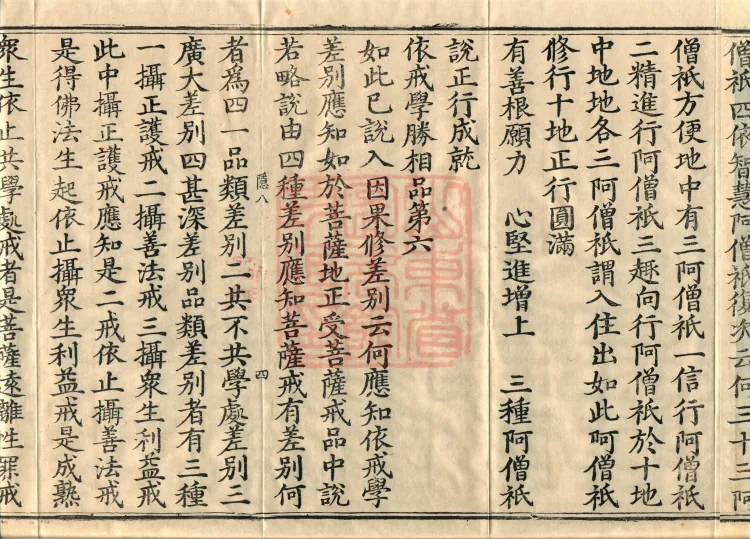 僧祇四依智慧阿僧祇復次云何三十三阿
僧祇方便地中有三阿僧祇一信行阿僧祇
二精進行阿僧祇三趣向行阿僧祇於十地
中地地各三阿僧祇謂入住出如此阿僧祇
修行十地正行圓滿
有善根願力　心堅進增上　三種阿僧祇
說正行成就
依戒學勝相品第六
如此已說入因果修差別云何應知依戒學
差別應知如於菩薩地正受菩薩戒品中說
若略說由四種差別應知菩薩戒有差別何
隱八　四
者為四一品類差別二共不共學處差別三
廣大差別四甚深差別品類差別者有三種
一攝正護戒二攝善法戒三攝眾生利益戒
此中攝正護戒應知是二戒依止攝善法戒
是得佛法生起依止攝眾生利益戒是成熟
眾生依止共學處戒者是菩薩遠離性罪戒